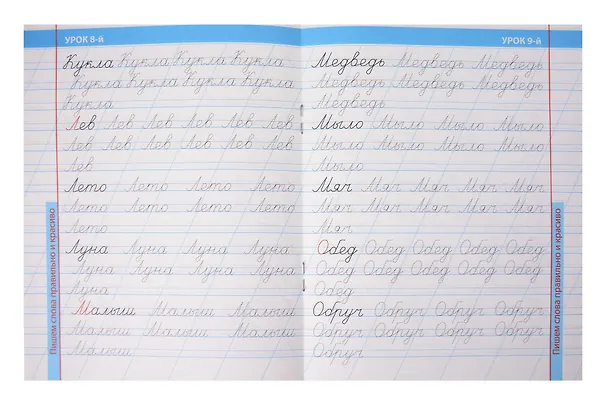 УРОК 8-й
Кукла Кукла Кукла Кукла
Кукла Кукла Кукла Кукла
Кукла
Лев Лев Лев Лев Лев Лев
Лев Лев Лев Лев Лев Лев
Лев
Лето Лето Лето Лето
Лето Лето Лето Лето
Лето
Луна Луна Луна Луна
Луна Луна Луна Луна
Луна
Малыш Малыш Малыш
Малыш Малыш Малыш
Малыш
Пишем слова правильно и красиво
УРОК 9-й
Медведь Медведь Медведь
Медведь Медведь Медведь
Медведь
Мыло Мыло Мыло Мыло
Мыло Мыло Мыло Мыло
Мыло
Мяч Мяч Мяч Мяч Мяч
Мяч Мяч Мяч Мяч Мяч
Мяч
Обед Обед Обед Обед Обед
Обед Обед Обед Обед Обед
Обед
Обруч Обруч Обруч Обруч
Обруч Обруч Обруч Обруч
Обруч
Пишем слова правильно и красиво